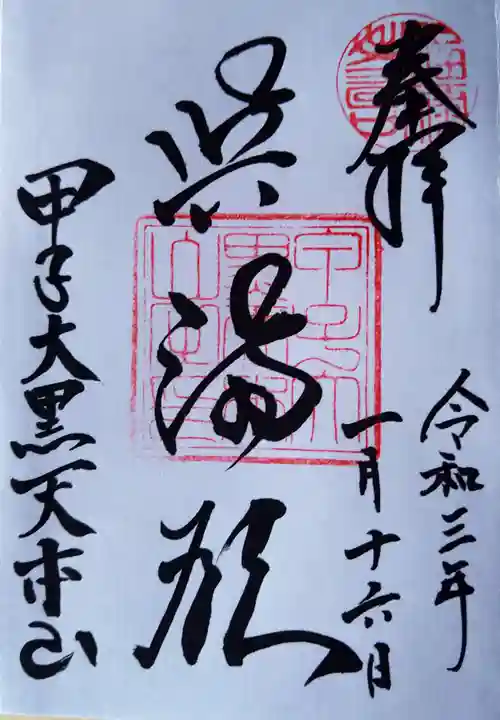 奉拝
令和三年
一月十六日
湯殿
甲子大黒天本山